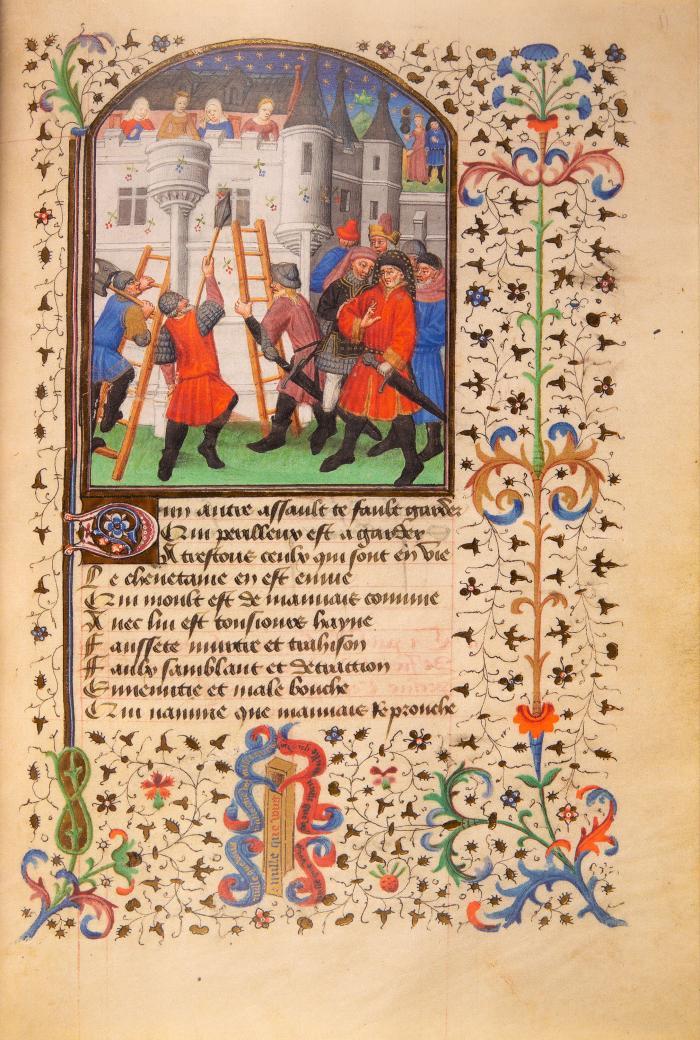 Dun autre assault te fault garder
Qui perilleux est a garder
A trestous ceulx qui sont en vie
Le chevetaine en est envie
Qui moult est de mauvaise commune
Avec lui est tousiours hayne
Faussete murtre et trahison
Faulx samblant et detraction
Ennemitie et male bouche
Qui nayme que mauvais Reprouche
mille que vous